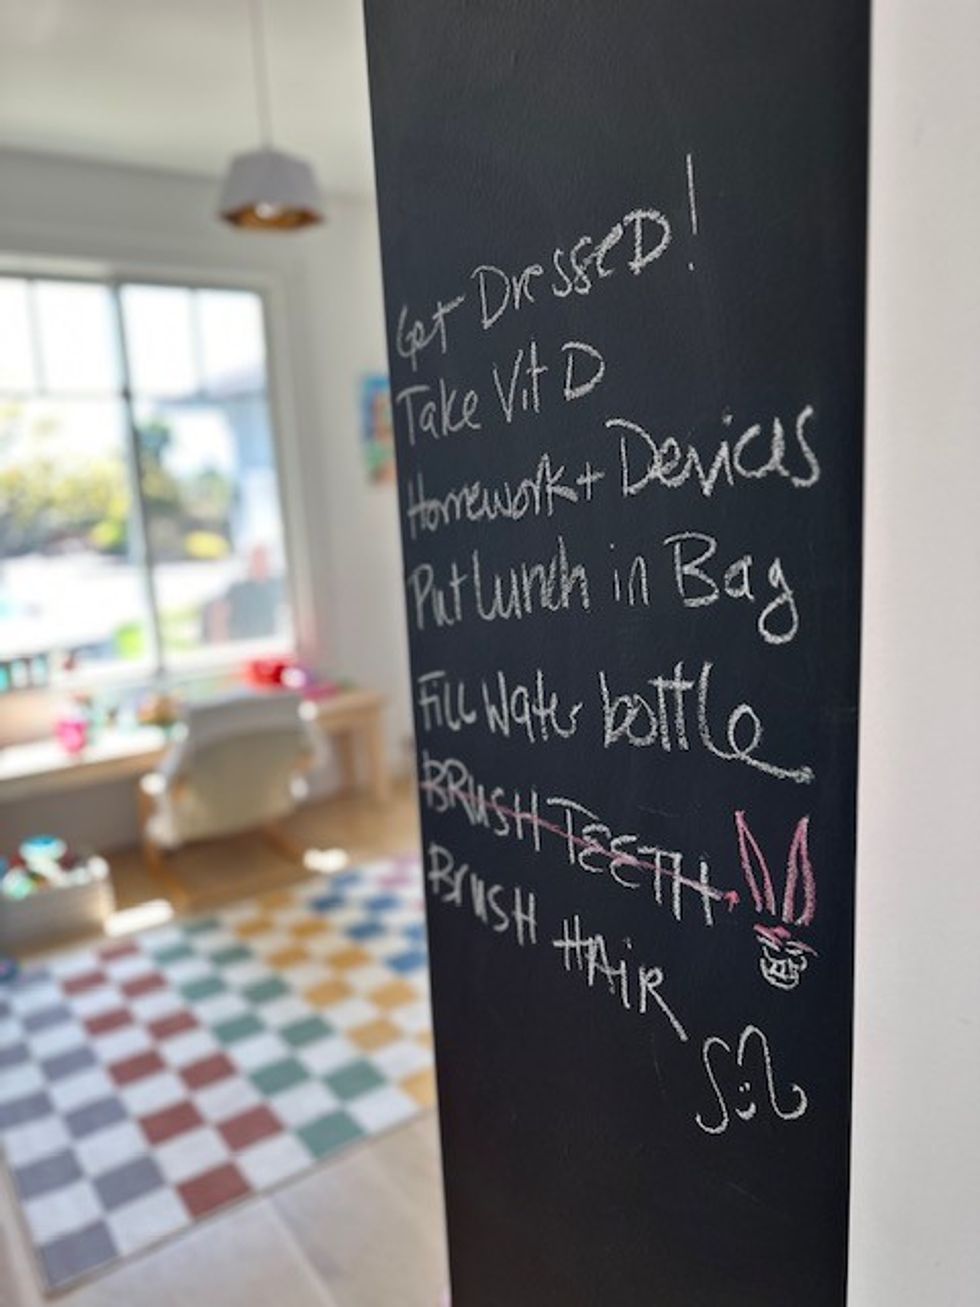 Get DresseD!
Take Vit D
Homework + Devices
Put Lunch in Bag
Fill Water bottle
BRUSH TEETH
BrUSH HAiR